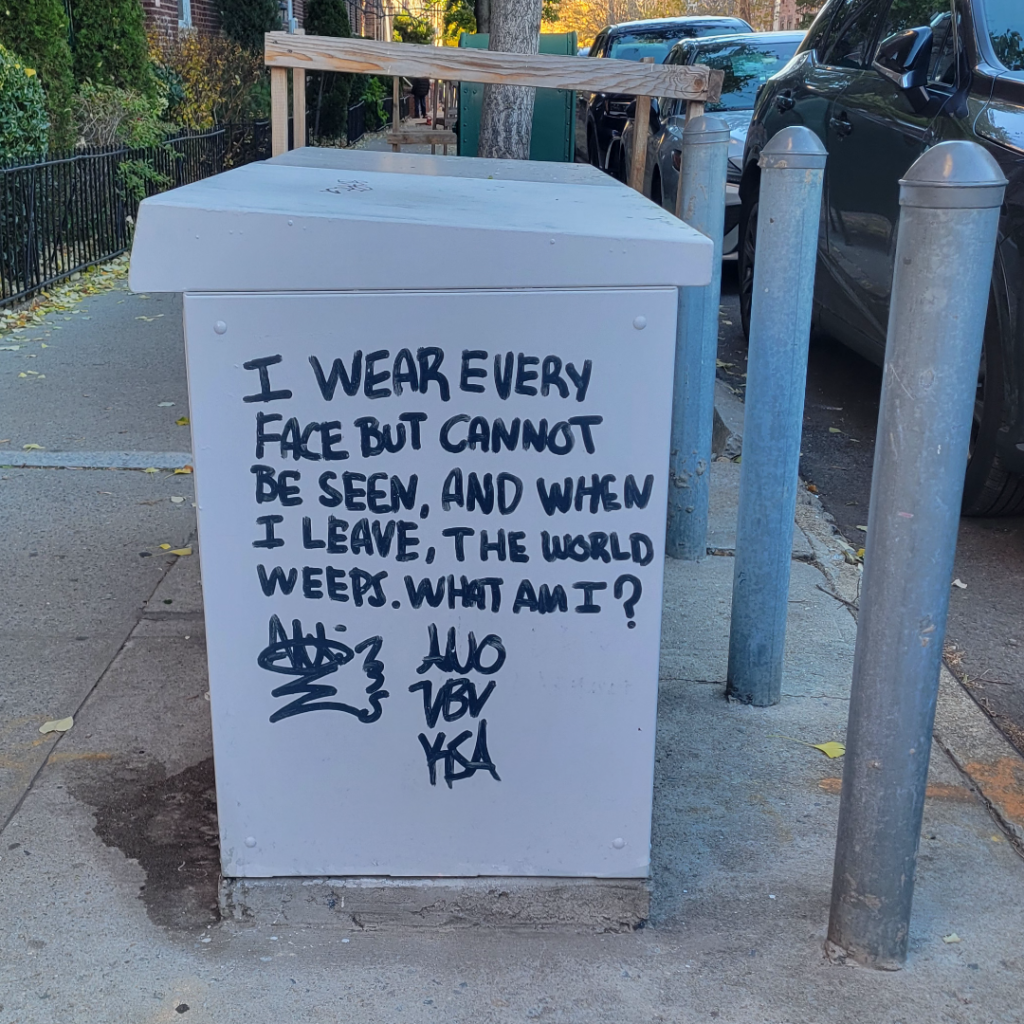 I WEAR EVERY
FACE BUT CANNOT
BE SEEN, AND WHEN
I LEAVE, THE WORLD
WEEPS. WHAT AM I?
AUO
VBV
KSA